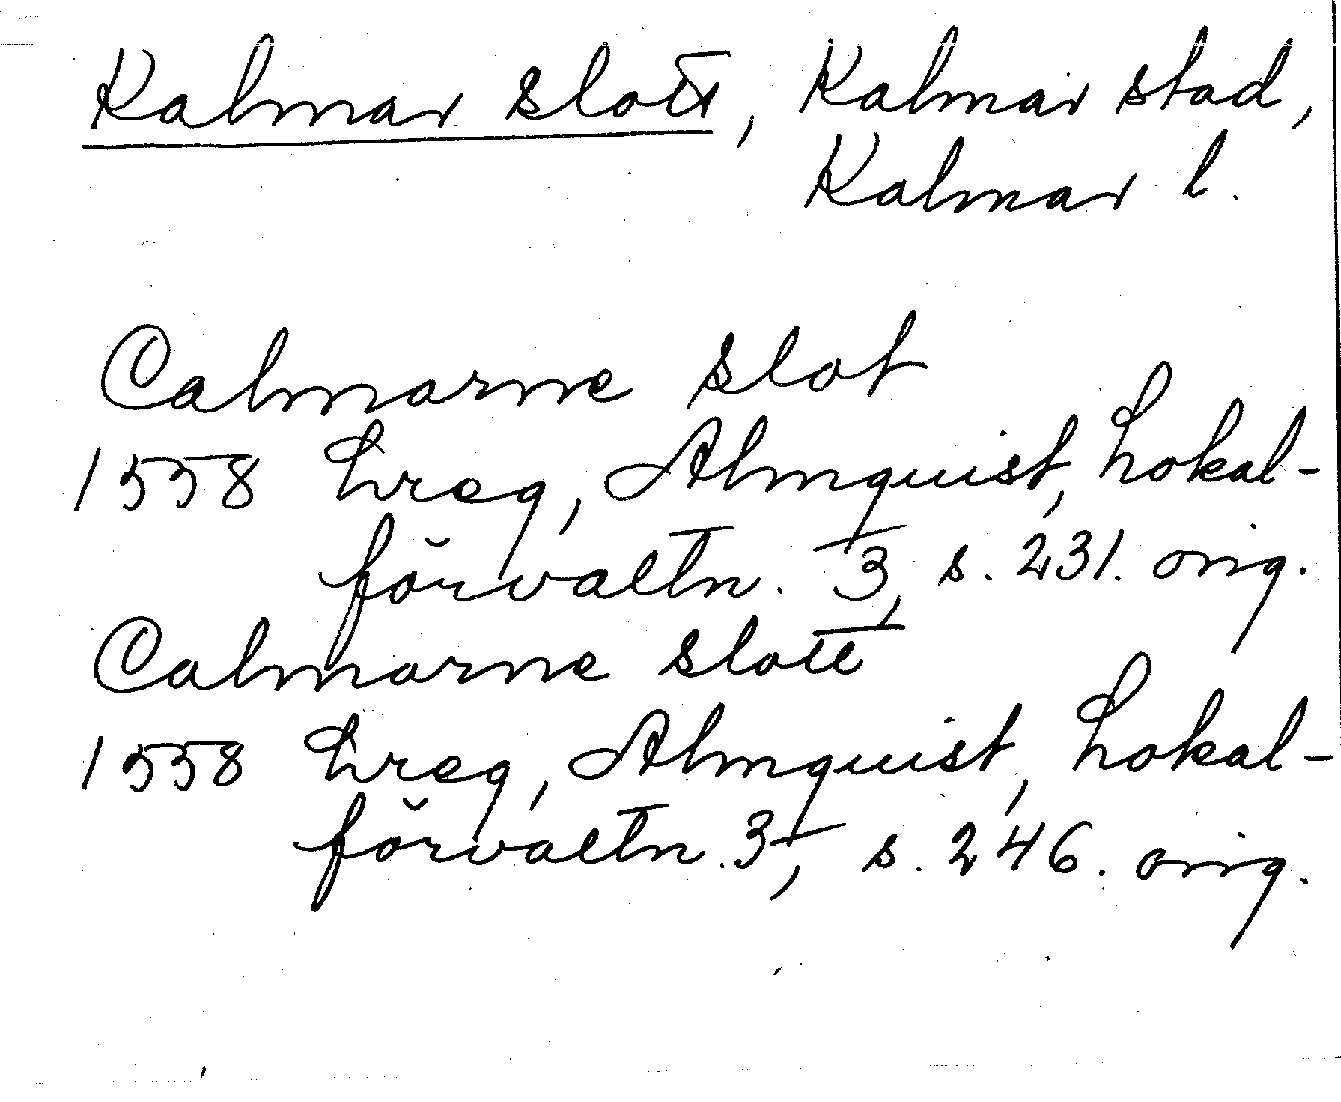 Kalmar slott, Kalmar stad,
Kalmar l.
Calmarne slot
1558 Lreg, Almquist, Lokal-
förvaltn. 3, s. 231. orig.
Calmarne slott
1558 Lreg, Almquist, Lokal-
förvaltn. 3, s. 246. orig.